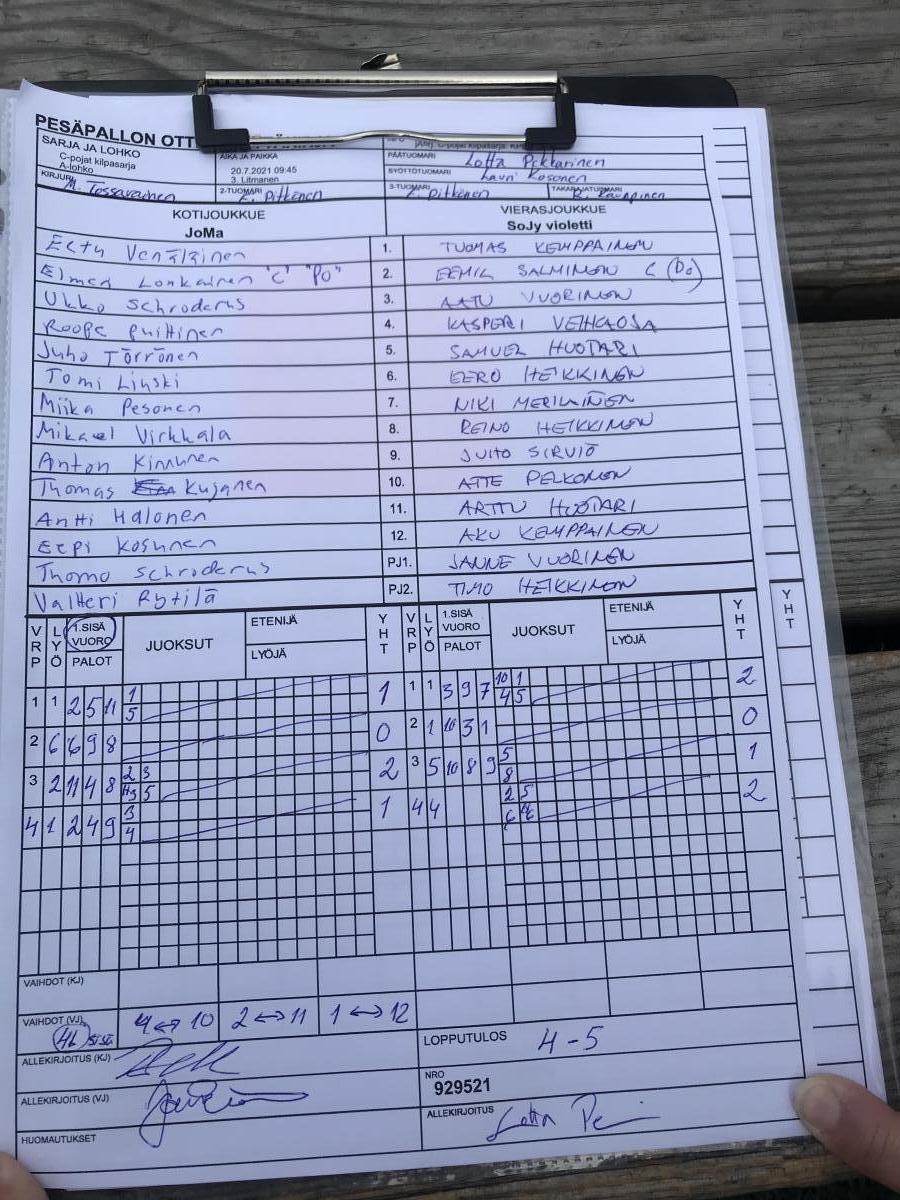 PESÄPALLON OTT
SARJA JA LOHKO
C-pojat kilpasarja
A-lohko
AIKA JA PAIKKA
20.7.2021 09:45
3. Litmanen
PÄÄTUOMARI Lotta Pekkarinen
SYÖTTÖTUOMARI Lauri Kosonen
KIRJURI M. Tossavainen
2-TUOMARI E. Pitkänen
3-TUOMARI E. Pitkänen
TAKARAJATUOMARI K. Kauppinen
KOTIJOUKKUE
JoMa
VIERASJOUKKUE
SoJy violetti
Eetu Venäläinen 1. TUOMAS KEMPPAINEN
Elmer Lonkainen "C" "PO" 2. EEMIL SALMINEN C (Po)
Ukko Schroderus 3. AATU VUORINEN
Roope Puittinen 4. KASPERI VEIHAOSA
Juho Törrönen 5. SAMUEL HUOTARI
Tomi Linski 6. EERO HEIKKINEN
Miika Pesonen 7. NIKI MERILÄINEN
Mikael Virkkala 8. REINO HEIKKINEN
Anton Kinnunen 9. JUHO SIRVIÖ
Thomas Kujanen 10. ATTE PELKONEN
Antti Halonen 11. ARTTU HUOTARI
Eepi Kosunen 12. AKU KEMPPAINEN
Thomo Schroderus PJ1. JANNE VUORINEN
Valtteri Rytilä PJ2. TIMO HEIKKINEN
VRP LYÖ 1.SISÄ VUORO PALOT JUOKSUT ETENIJÄ LYÖJÄ YHT VRP LYÖ 1.SISÄ VUORO PALOT JUOKSUT ETENIJÄ LYÖJÄ YHT YHT
1 1 2 5 11 1 1 1 1 3 9 7 10 1 2
5 4 5
2 6 6 9 8 0 2 1 10 3 1 0
3 2 11 4 8 2 3 2 3 5 10 8 9 5 1
5 8
4 1 2 4 9 3 1 4 4 2 5 2
4 6
VAIHDOT (KJ)
VAIHDOT (VJ) 4 ↔ 10 2 ↔ 11 1 ↔ 12
LOPPUTULOS 4-5
ALLEKIRJOITUS (KJ)
NRO
929521
ALLEKIRJOITUS (VJ)
ALLEKIRJOITUS
HUOMAUTUKSET